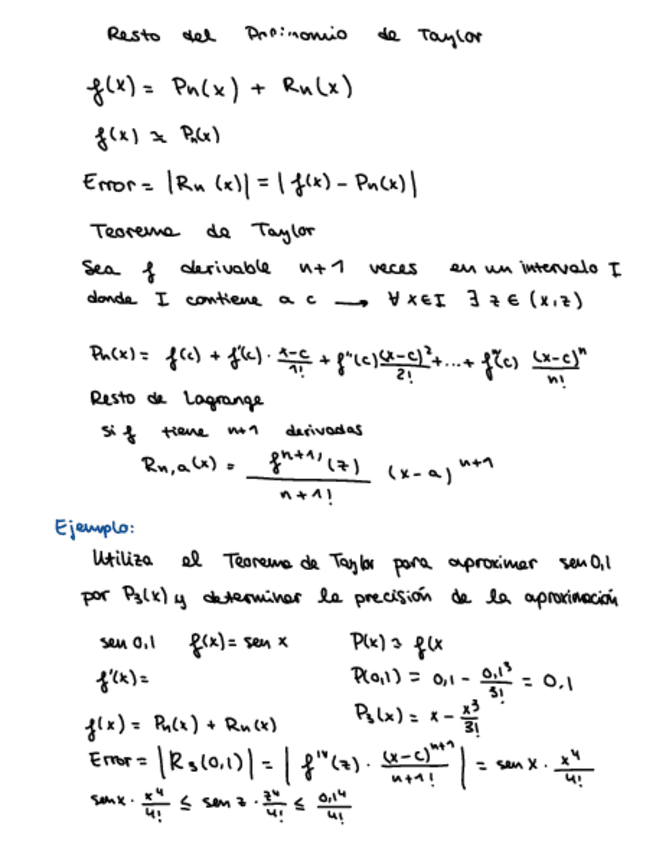 Resto del Polinomio de Taylor
f(x) = Pn(x) + Rn(x)
f(x) ≃ Pn(x)
Error = |Rn (x)| = | f(x) - Pn(x)|
Teorema de Taylor
Sea f derivable n+1 veces en un intervalo I
donde I contiene a c → ∀ x∈I ∃ z ∈ (x,z)
Pn(x) = f(c) + f'(c) · (x-c)/1! + f''(c) (x-c)²/2! + ... + fⁿ(c) (x-c)ⁿ/n!
Resto de Lagrange
si f tiene n+1 derivadas
Rn,a(x) = fⁿ⁺¹⁾(z)/n+1! (x-a)ⁿ⁺¹
Ejemplo:
Utiliza el Teorema de Taylor para aproximar sen 0,1
por P₃(x) y determinar la precisión de la aproximación
sen 0,1 f(x) = sen x P(x) ≃ f(x
f'(x) = P(0,1) = 0,1 - 0,1³/3! = 0,1
P₃(x) = x - x³/3!
f(x) = Pn(x) + Rn(x)
Error = |R₃(0,1)| = | fᴵⱽ(z) · (x-c)ⁿ⁺¹/n+1! | = sen x · x⁴/4!
sen x · x⁴/4! ≤ sen z · z⁴/4! ≤ 0,1⁴/4!